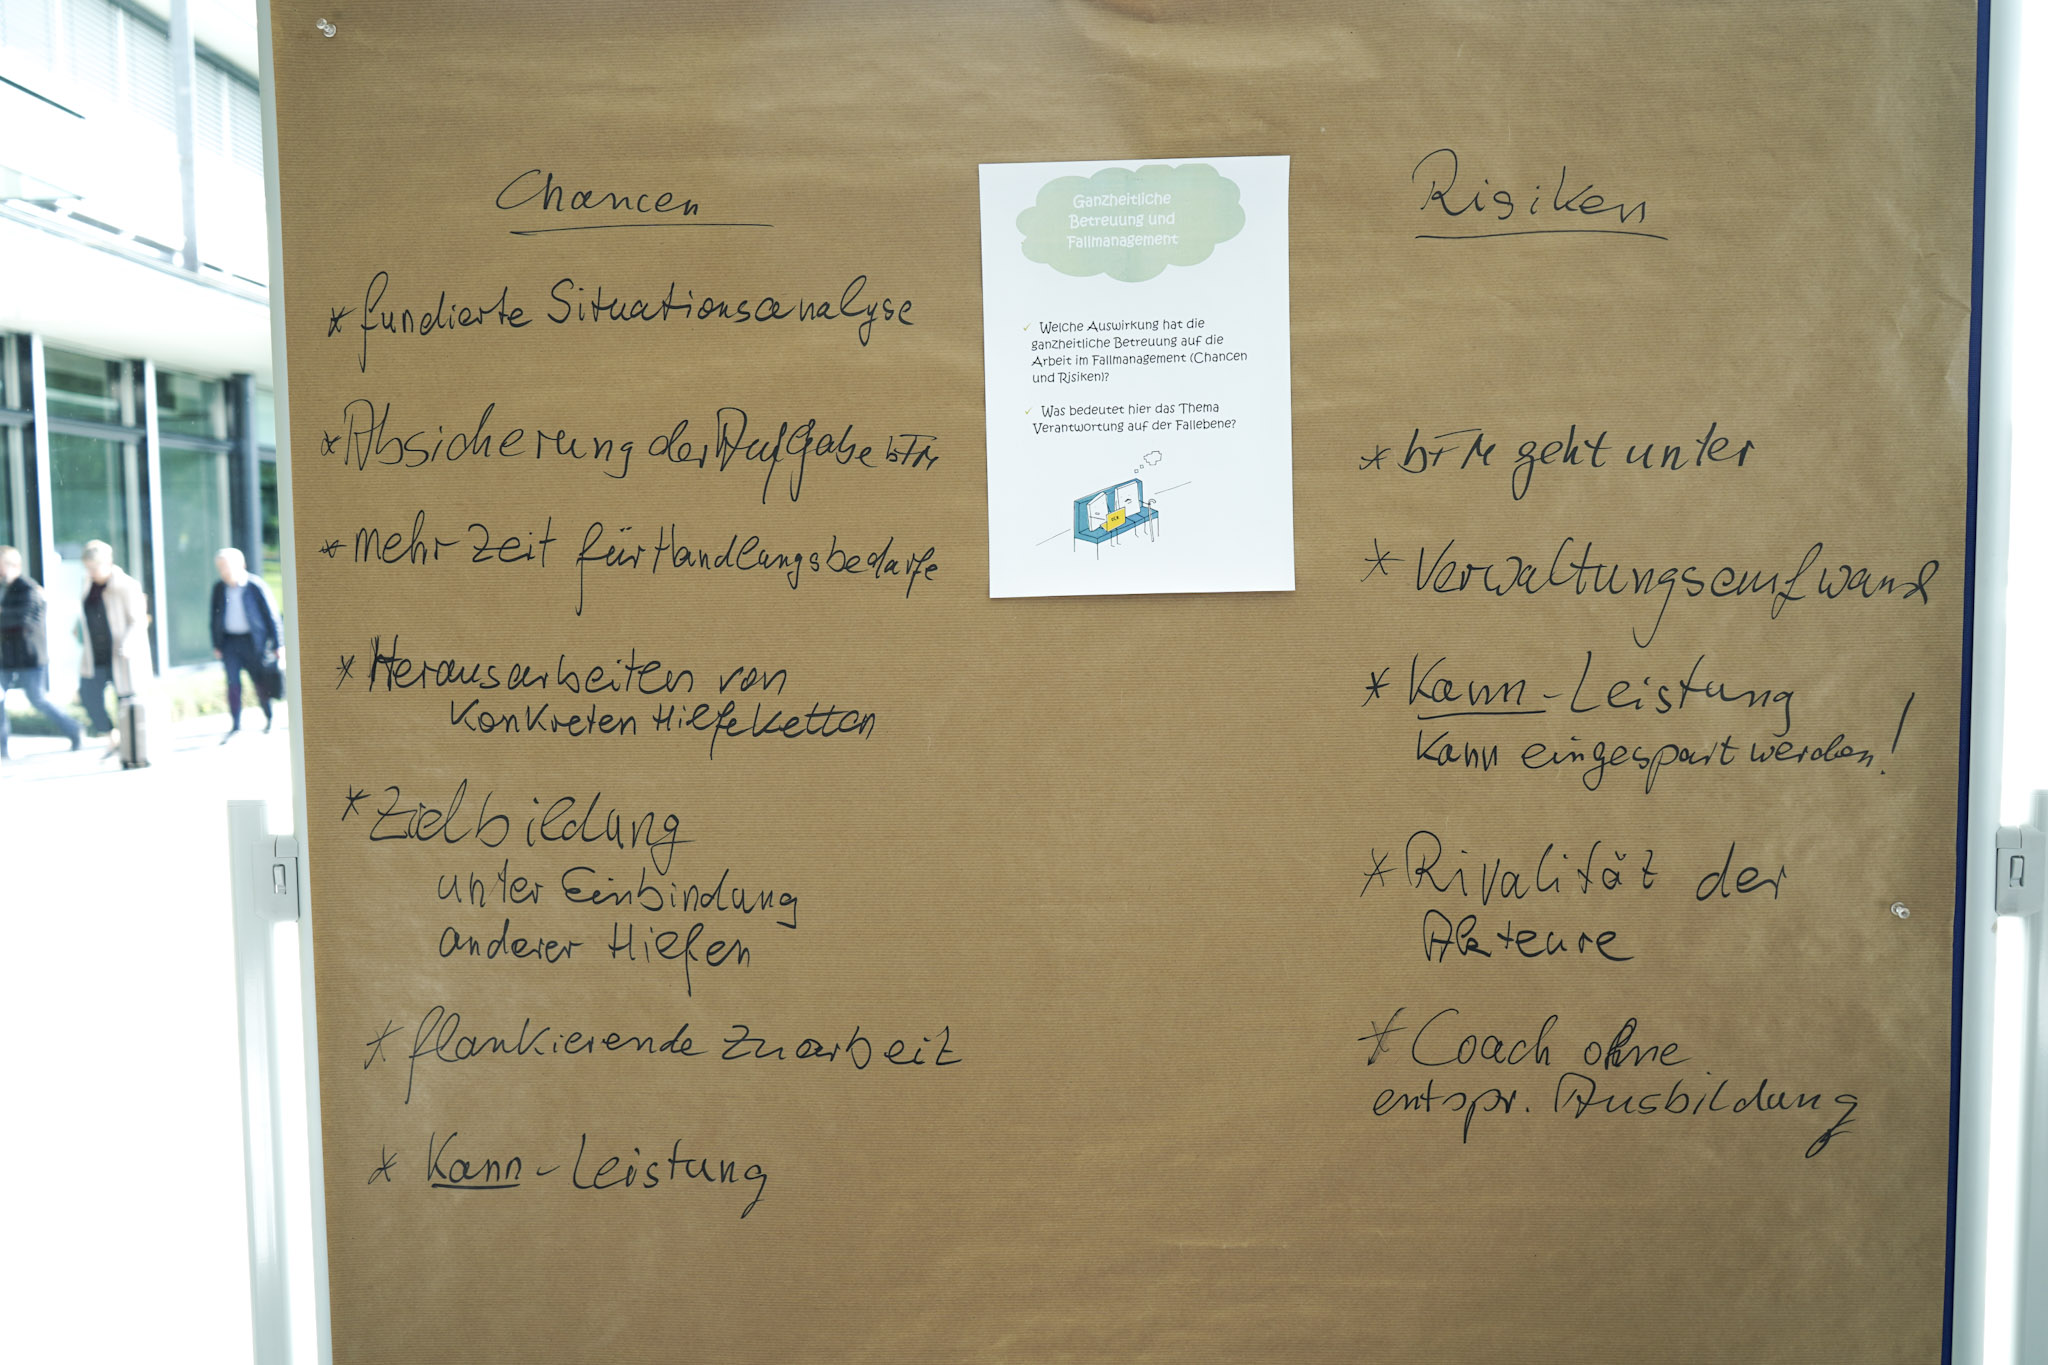 Chancen
* fundierte Situationsanalyse
* Absicherung der Aufgabe bFM
* mehr Zeit für Handlungsbedarfe
* Herausarbeiten von
konkreten Hilfeketten
* Zielbildung
unter Einbindung
anderer Hilfen
* flankierende Zuarbeit
* Kann-Leistung
Ganzheitliche
Betreuung und
Fallmanagement
✓ Welche Auswirkung hat die
ganzheitliche Betreuung auf die
Arbeit im Fallmanagement (Chancen
und Risiken)?
✓ Was bedeutet hier das Thema
Verantwortung auf der Fallebene?
Risiken
* bFM geht unter
* Verwaltungsaufwand
* Kann-Leistung
kann eingespart werden!
* Rivalität der
Akteure
* Coach ohne
entspr. Ausbildung